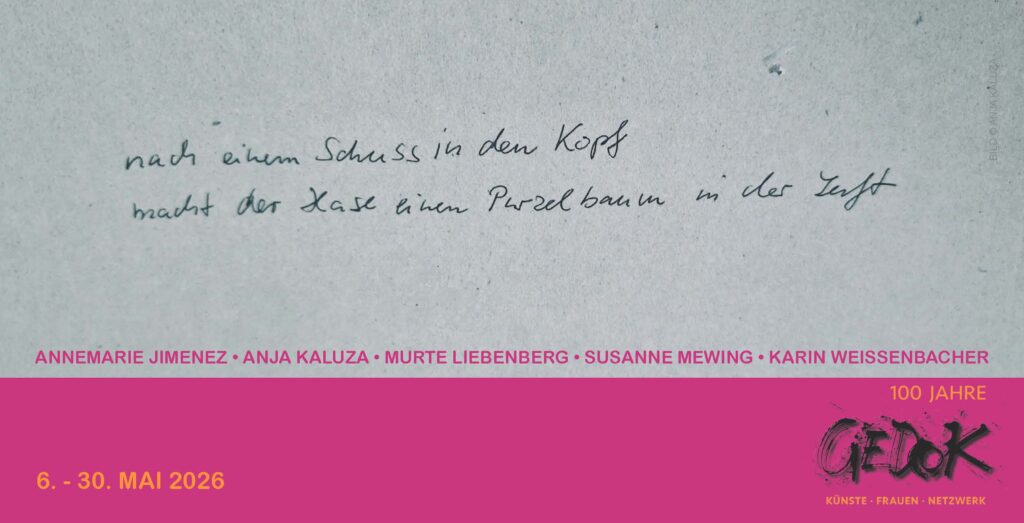 BILD © ANJA KALUZA
nach einem Schuss in den Kopf
macht der Hase einen Purzelbaum in der Luft
ANNEMARIE JIMENEZ • ANJA KALUZA • MURTE LIEBENBERG • SUSANNE MEWING • KARIN WEISSENBACHER
100 JAHRE
GEDOK
KÜNSTE · FRAUEN · NETZWERK
6. - 30. MAI 2026